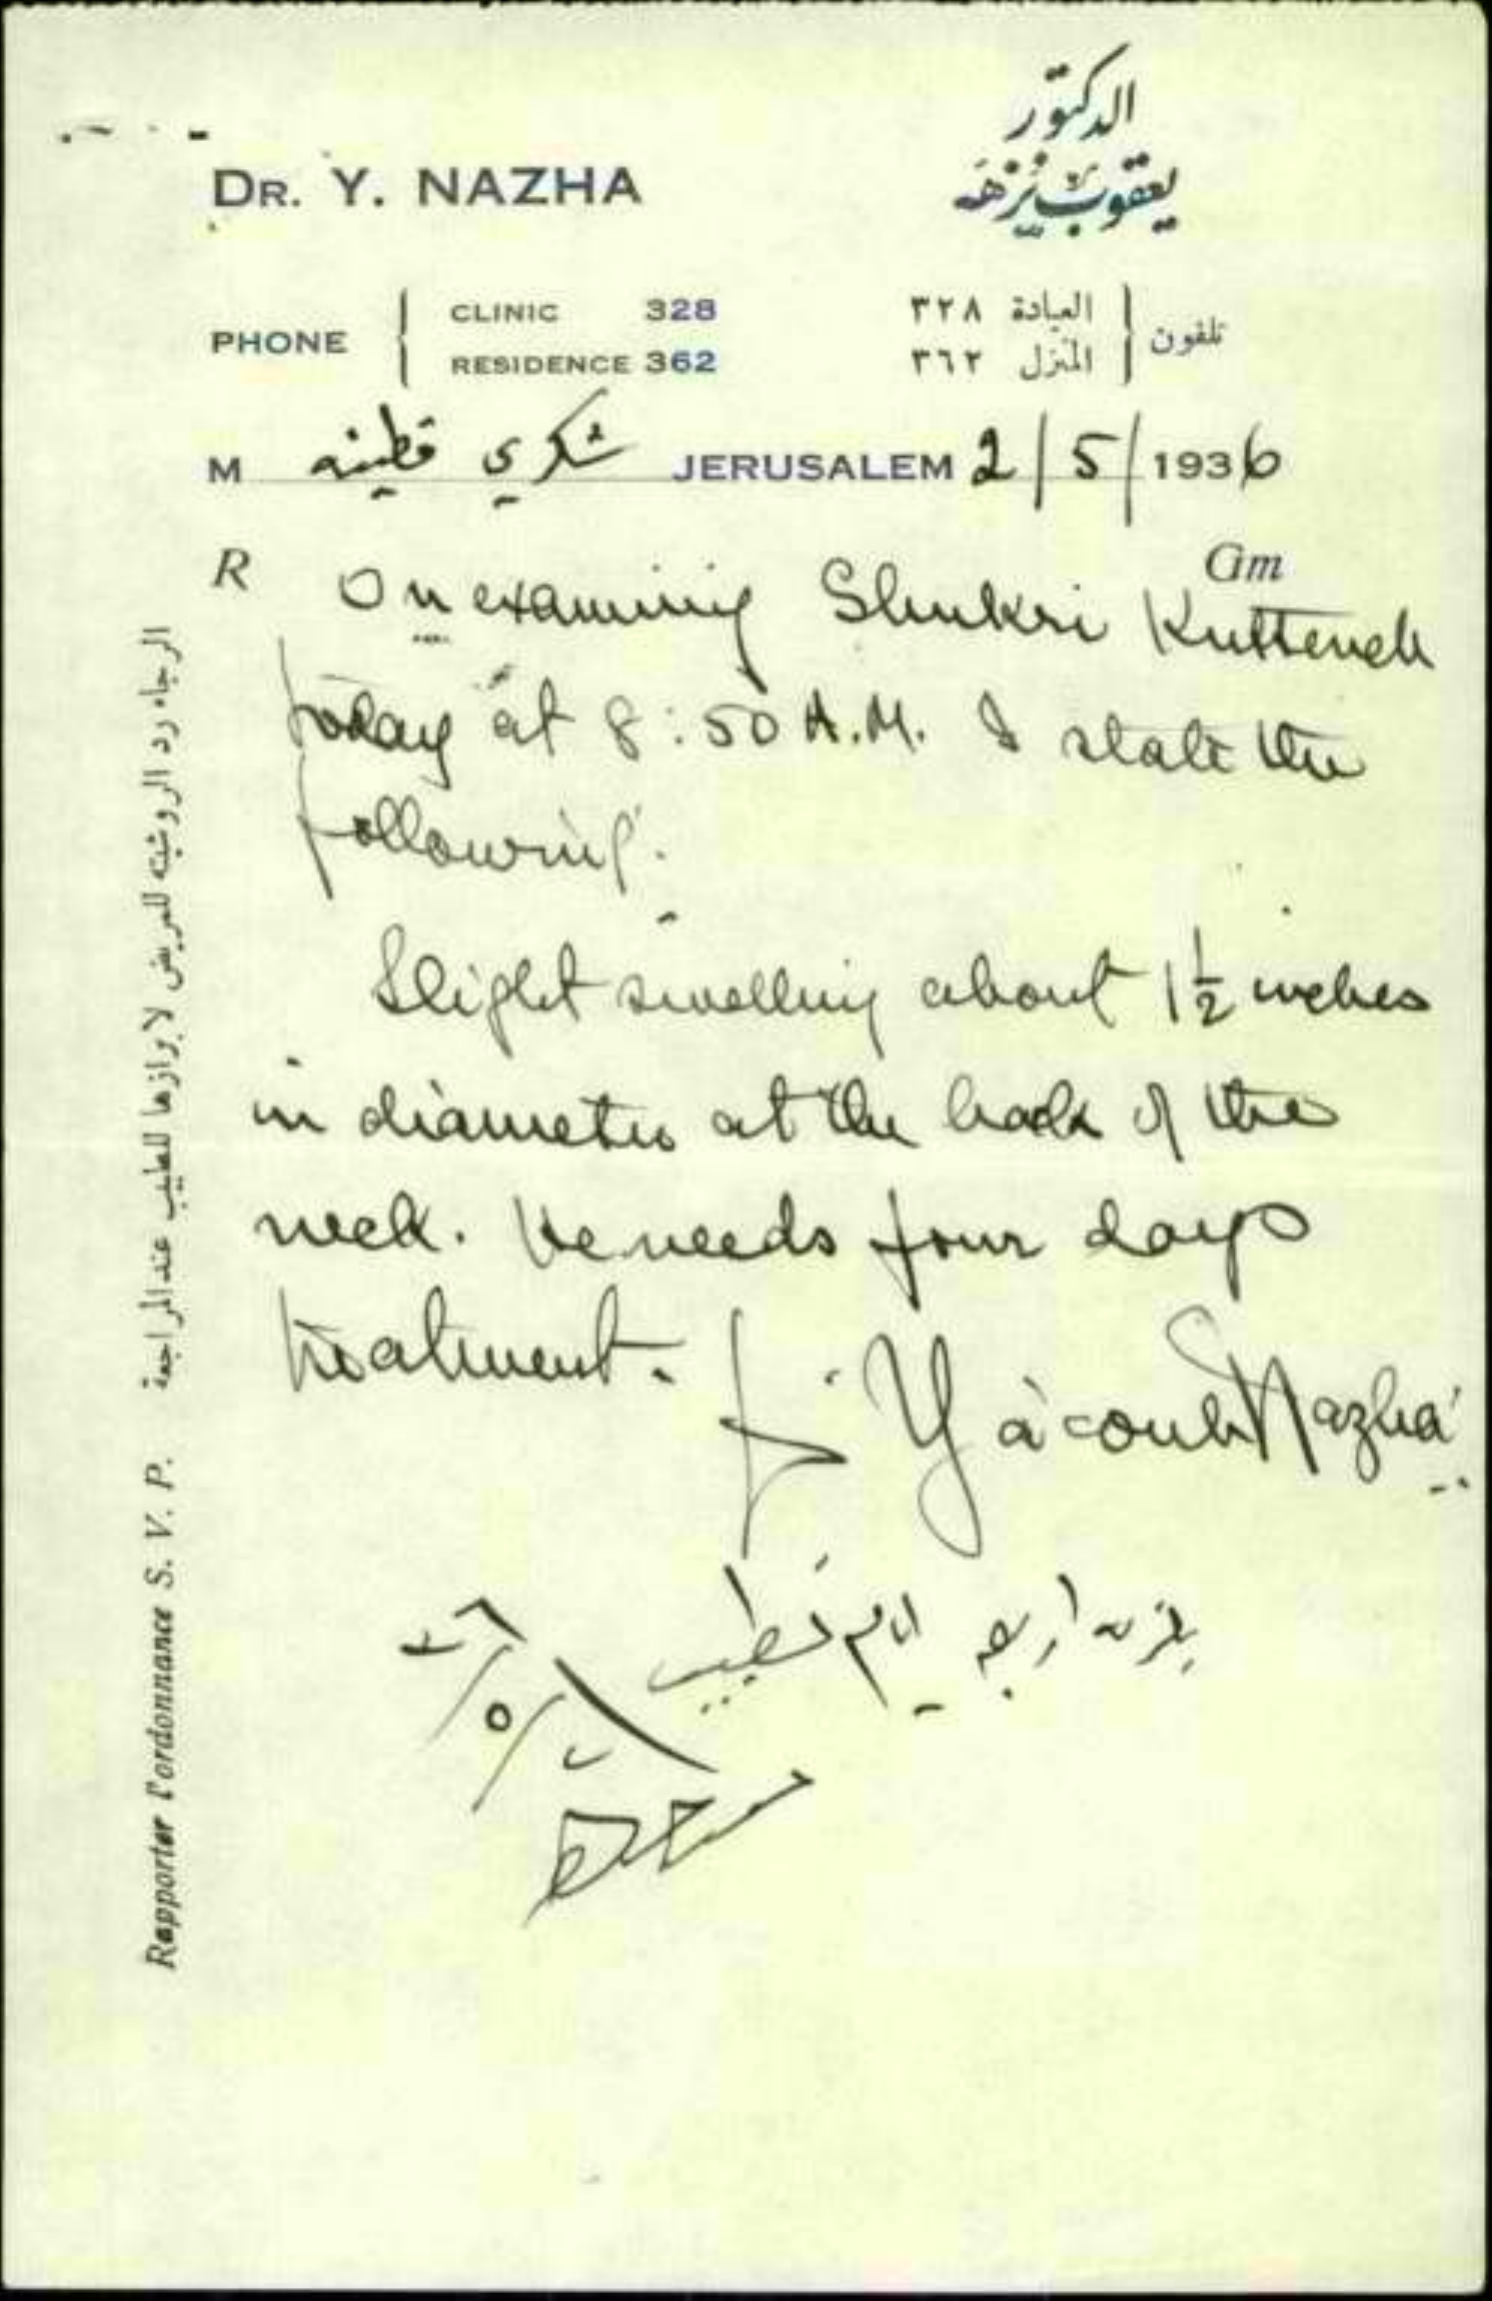 DR. Y. NAZHA
الدكتور
يعقوب نزهه
PHONE
CLINIC 328
RESIDENCE 362
تلفون
العيادة ٣٢٨
المنزل ٣٦٢
M شكري قطينه JERUSALEM 2/5/1936
R Gm
On examining Shukri Kutteneh
today at 8:50 A.M. I state the
following.
Slight swelling about 1½ inches
in diameter at the back of the
neck. He needs four days
treatment.
Yacoub Nazha
اربعه ايام تطبيب
الرجاء رد الروشته للمريض لابرازها للطبيب عند المراجعة
Rapporter l'ordonnance S. V. P.